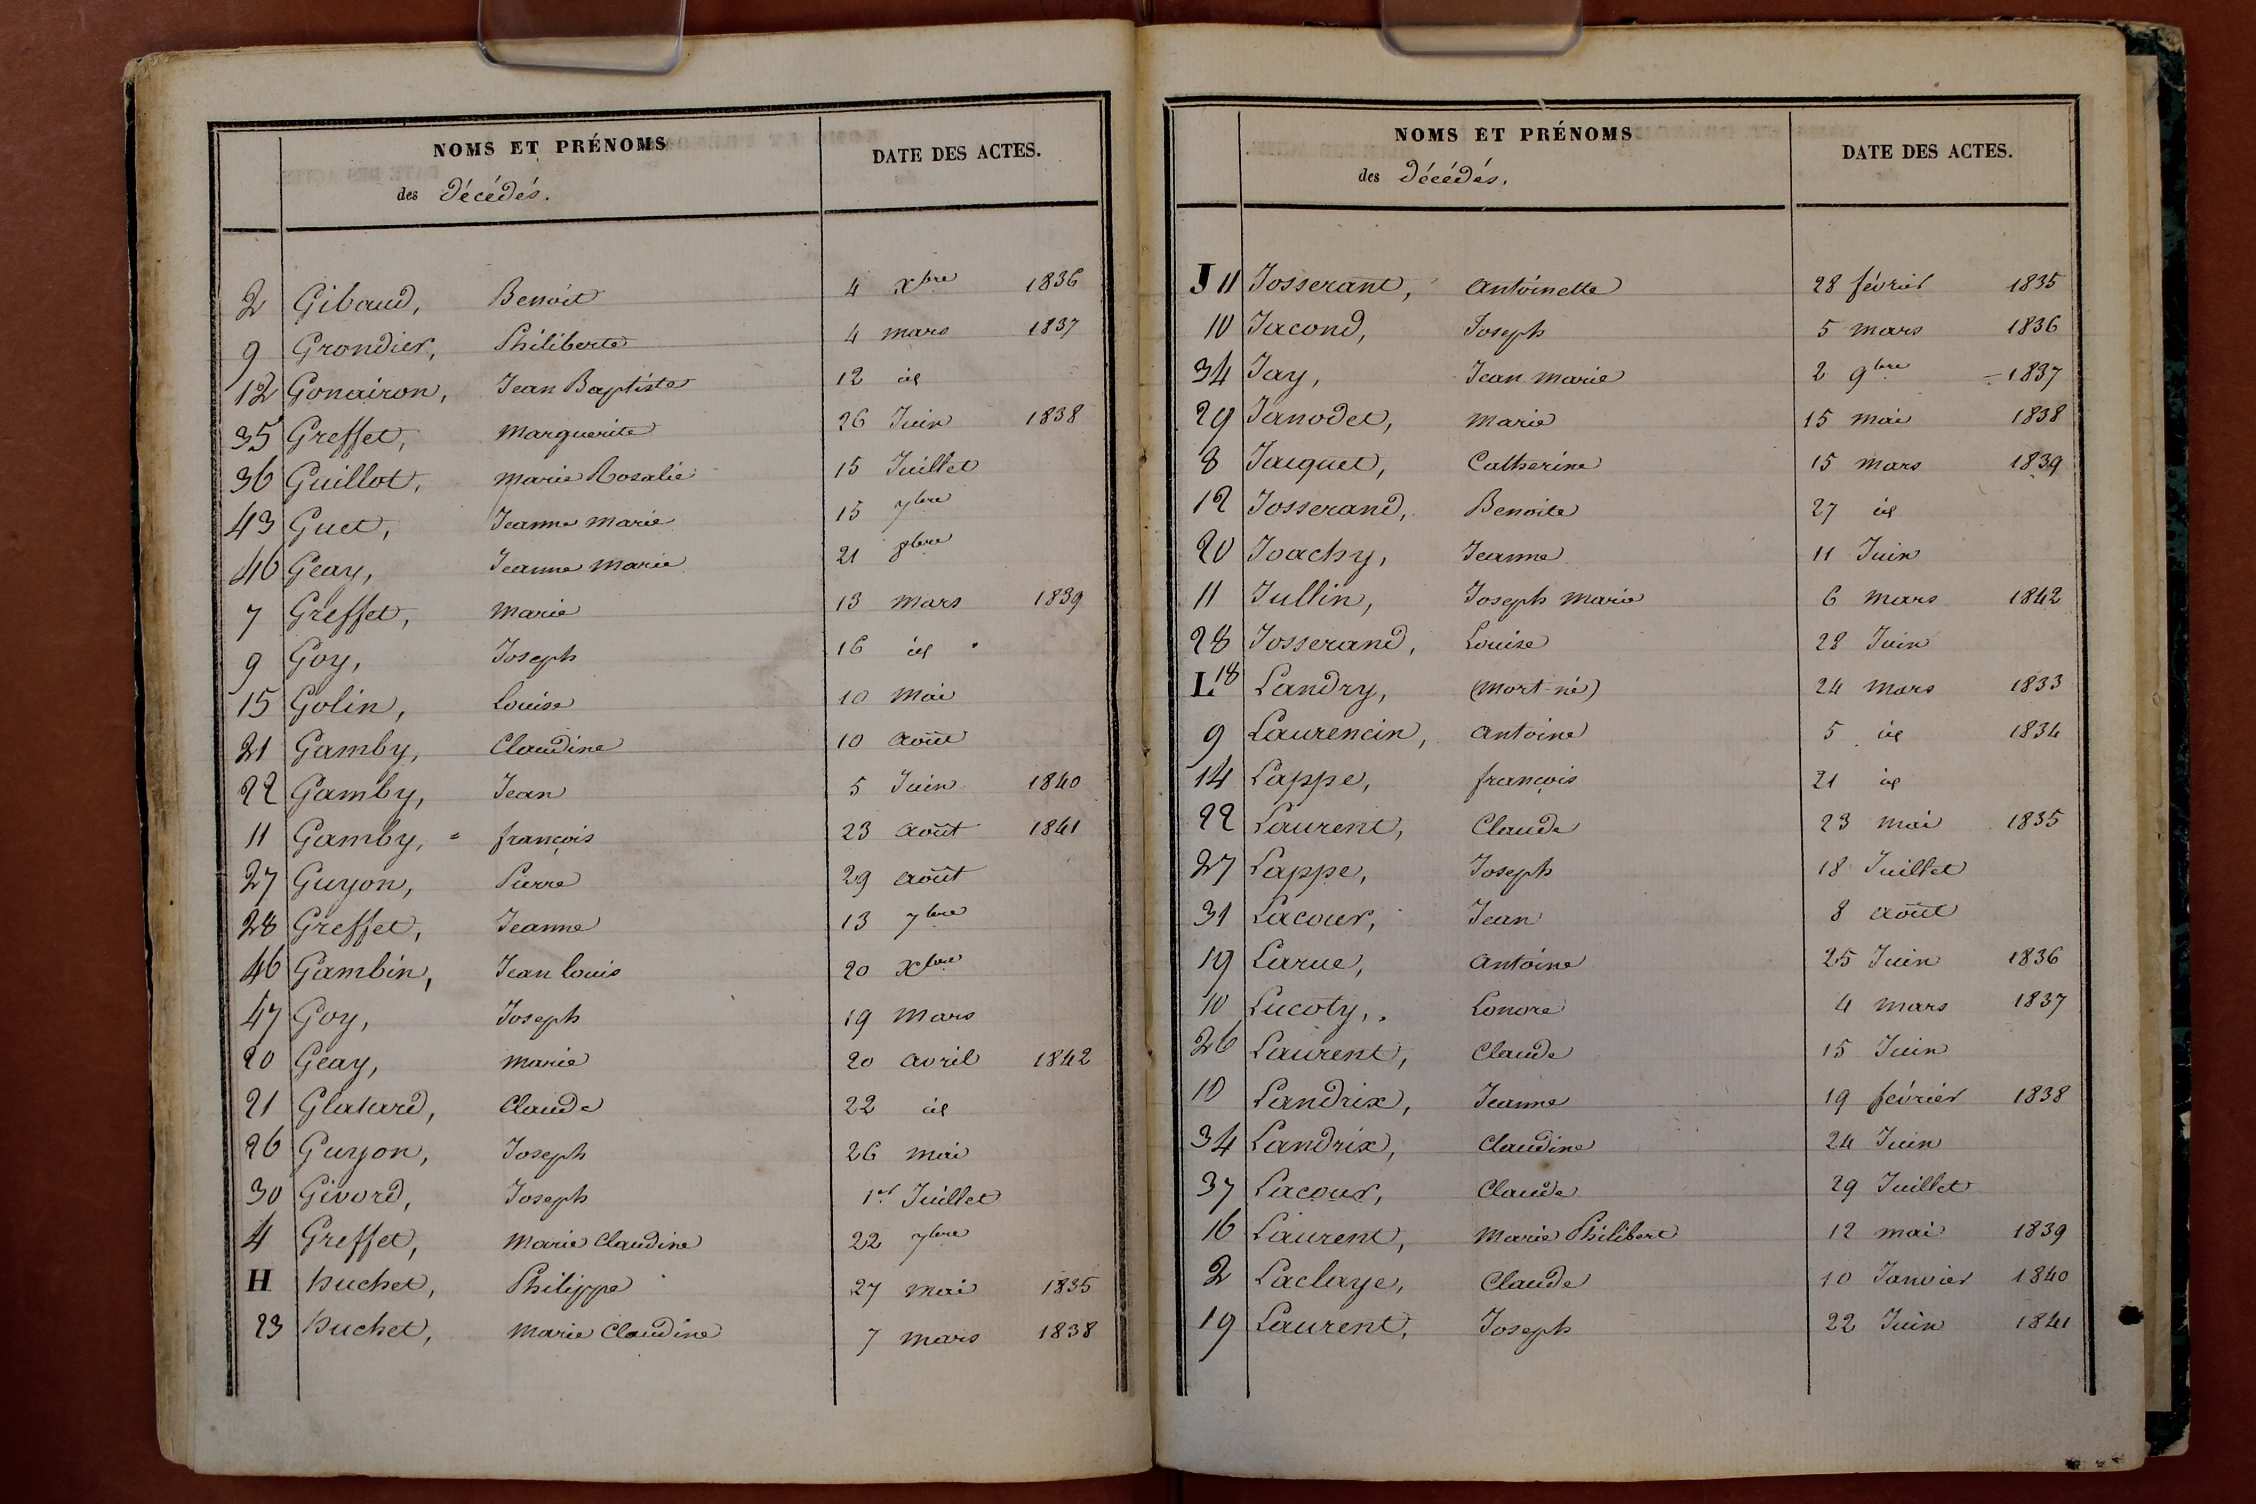 NOMS ET PRÉNOMS
des décédés.
DATE DES ACTES.
2 Gibaud, Benoit 4 Xbre 1836
9 Grondier, Philiberte 4 mars 1837
12 Gonairon, Jean Baptiste 12 id
35 Greffet, Marguerite 26 Juin 1838
36 Guillot, Marie Rosalie 15 Juillet
43 Guet, Jeanne Marie 15 7bre
46 Geay, Jeanne Marie 21 8bre
7 Greffet, Marie 13 mars 1839
9 Goy, Joseph 16 id
15 Golin, Louise 10 Mai
21 Gamby, Claudine 10 Août
22 Gamby, Jean 5 Juin 1840
11 Gamby, = françois 23 Août 1841
27 Guyon, Pierre 29 Août
28 Greffet, Jeanne 13 7bre
46 Gambin, Jean Louis 20 Xbre
47 Goy, Joseph 19 Mars
20 Geay, Marie 20 avril 1842
21 Glatard, Claude 22 id
26 Guyon, Joseph 26 mai
30 Givord, Joseph 1er Juillet
4 Greffet, Marie Claudine 22 7bre
H huchet, Philippe 27 mai 1835
23 huchet, Marie Claudine 7 mars 1838
NOMS ET PRÉNOMS
des décédés.
DATE DES ACTES.
J 11 Josserant, Antoinette 28 février 1835
10 Jacond, Joseph 5 mars 1836
34 Jay, Jean Marie 2 9bre 1837
29 Janodet, Marie 15 mai 1838
8 Jacquet, Catherine 15 mars 1839
12 Josserand, Benoite 27 id
20 Joachy, Jeanne 11 Juin
11 Jullin, Joseph Marie 6 mars 1842
28 Josserand, Louise 28 Juin
L 18 Landry, (mort-né) 24 mars 1833
9 Laurencin, Antoine 5 id 1834
14 Lappe, françois 21 id
22 Laurent, Claude 23 mai 1835
27 Lappe, Joseph 18 Juillet
31 Lacour, Jean 8 Août
19 Larue, Antoine 25 Juin 1836
10 Lucoty, Lonore 4 mars 1837
26 Laurent, Claude 15 Juin
10 Landrix, Jeanne 19 février 1838
34 Landrix, Claudine 24 Juin
37 Lacour, Claude 29 Juillet
16 Laurent, Marie Philibert 12 mai 1839
2 Laclaye, Claude 10 Janvier 1840
19 Laurent, Joseph 22 Juin 1841